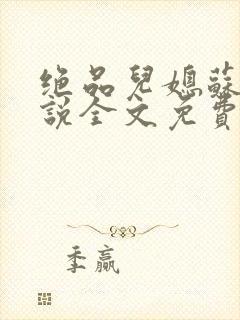 绝品兒媳蘇
說全文免費
季贏